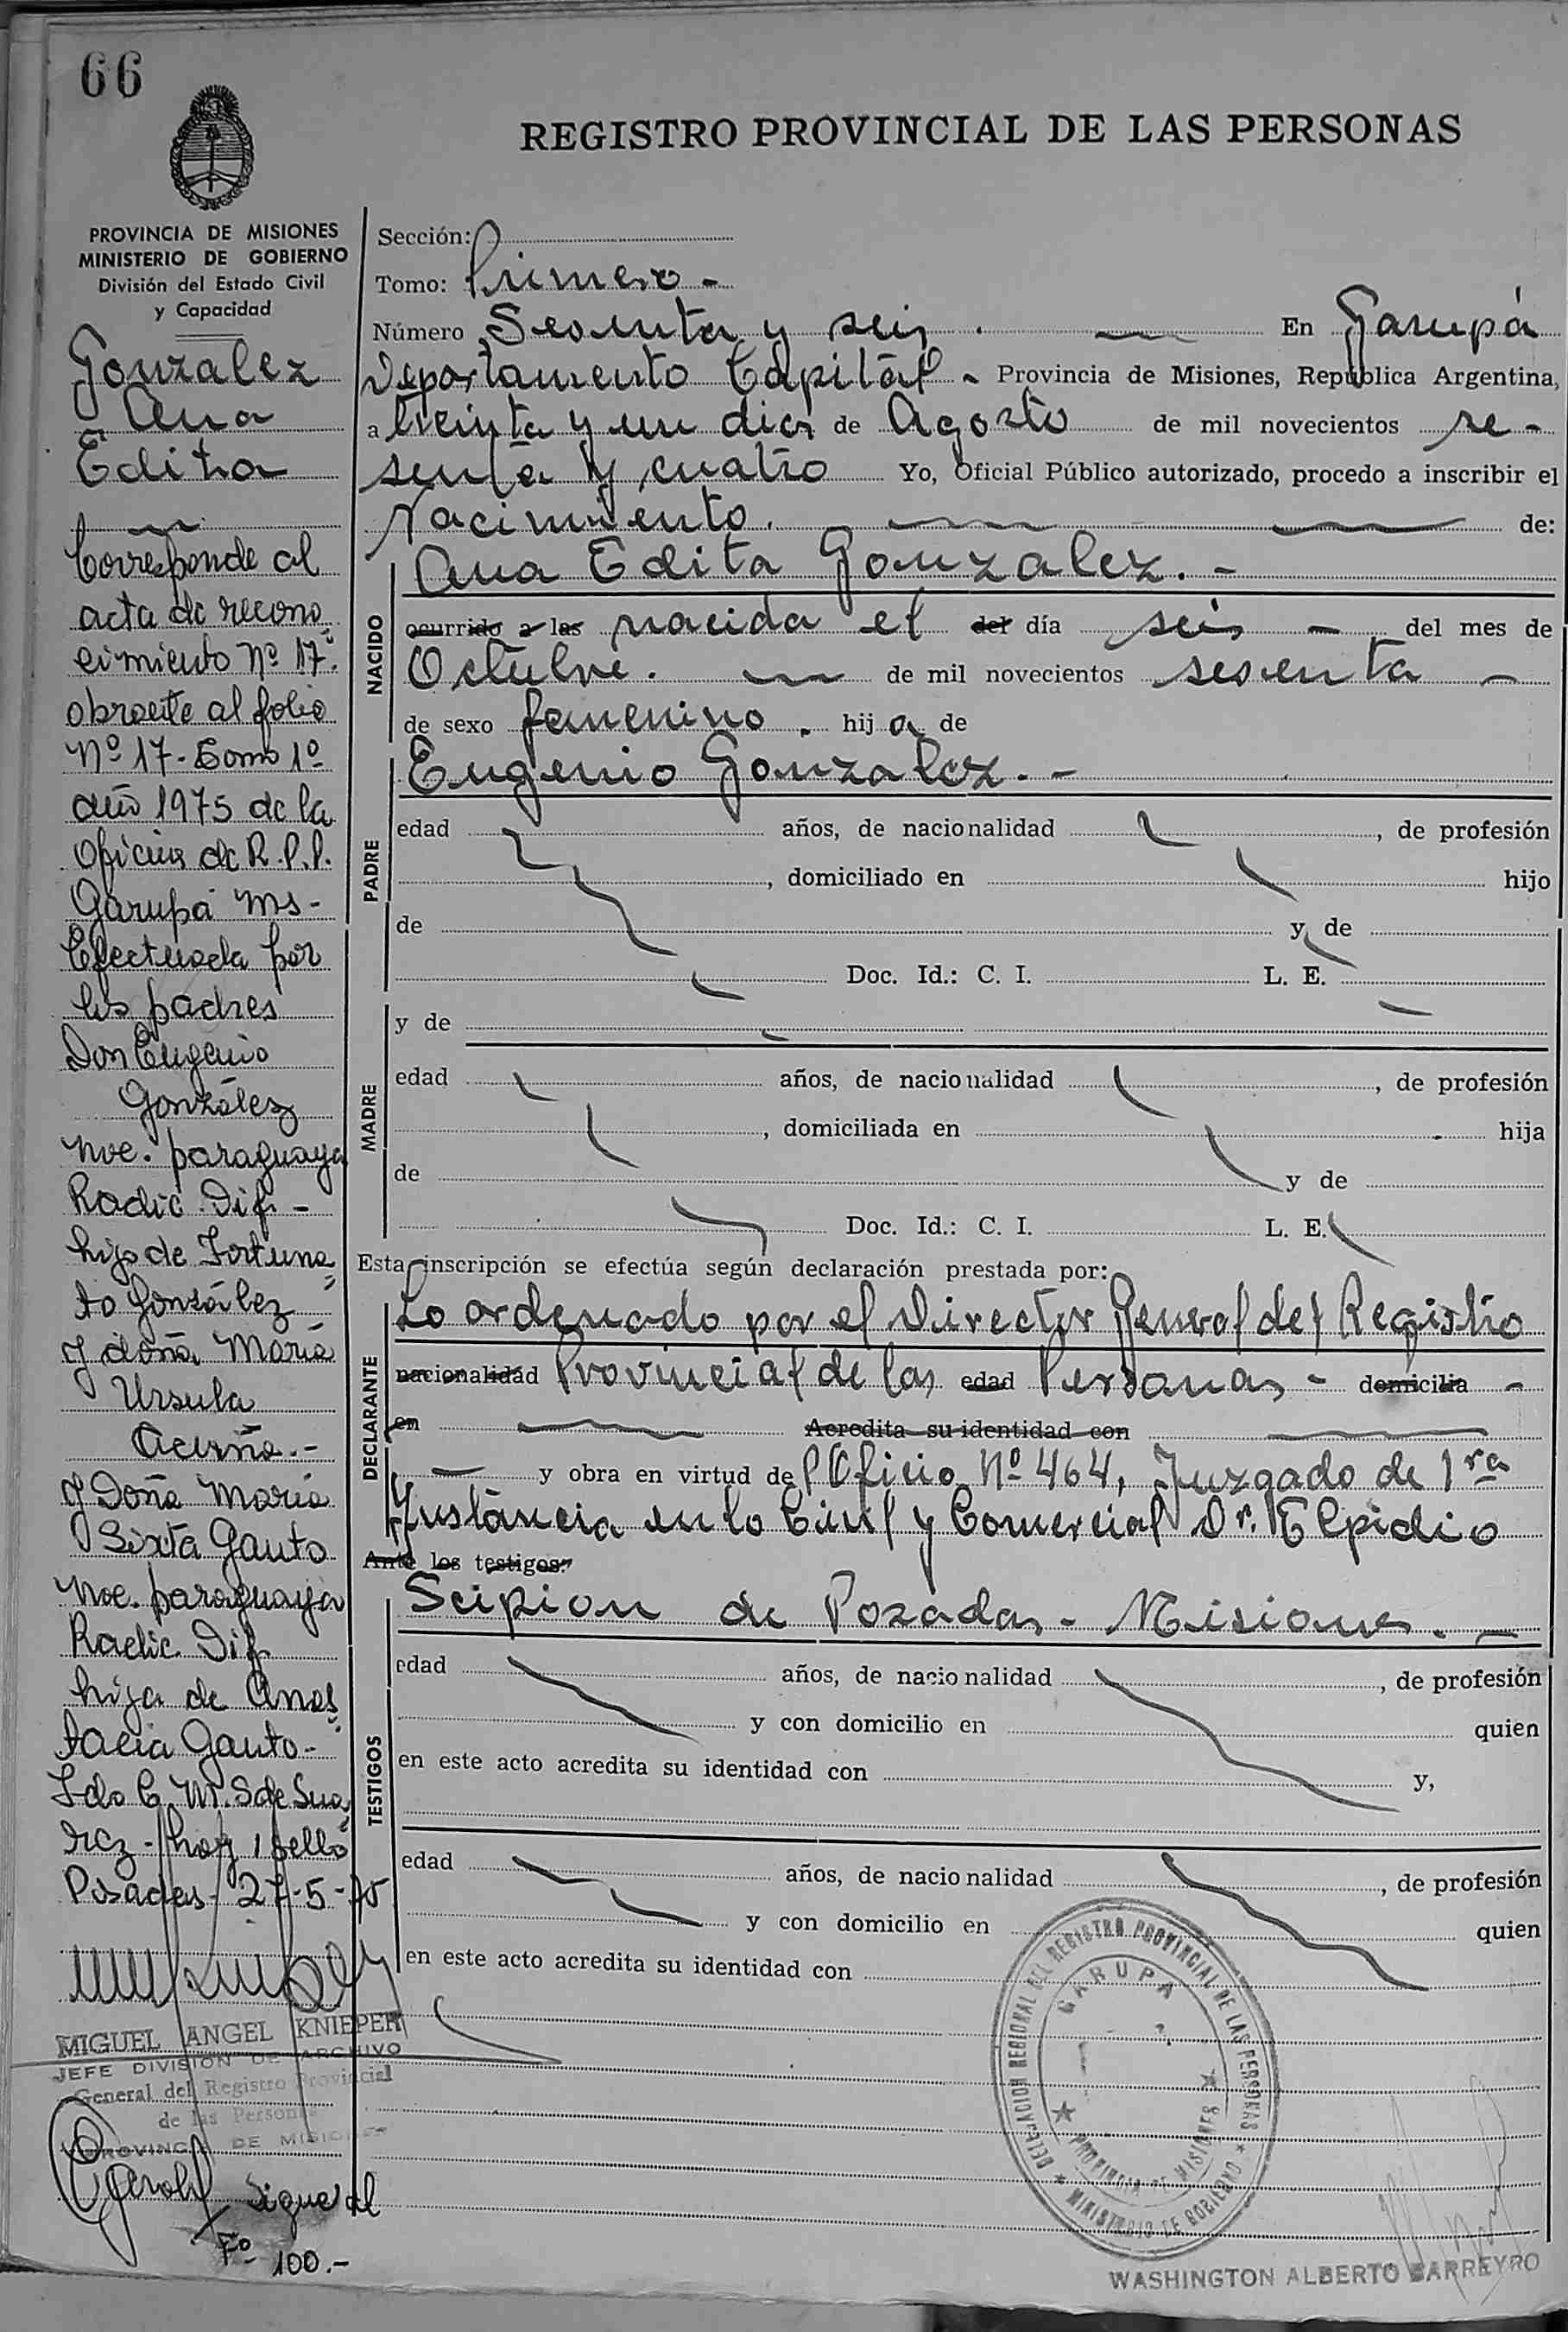 66
REGISTRO PROVINCIAL DE LAS PERSONAS
PROVINCIA DE MISIONES
MINISTERIO DE GOBIERNO
División del Estado Civil
y Capacidad
Gonzalez
Ana
Edita
Corresponde al
acta de recono
cimiento Nº 17.
obrante al folio
Nº 17 - Tomo 1º
año 1975 de la
Oficina de R.P.P.
Garupá Ms -
Efectuada por
los padres
Don Eugenio
González
nac. paraguaya
Radic. Dif. -
hijo de Fortuna
to González
y doña María
Ursula
Acuña.-
y Doña María
Sixta Gauto
nac. paraguaya
Radic. Dif.
hija de Anas
tacia Gauto -
Fdo C. M. S de Sua
rez - hay 1 sello
Posadas - 27-5-75
MIGUEL ANGEL KNIEPER
JEFE DIVISION DE ARCHIVO
General del Registro Provincial
de las Personas
PROVINCIA DE MISIONES
Sigue al
Fº 100.-
Sección:
Tomo: Primero -
Número Sesenta y seis . En Garupá
Departamento Capital - Provincia de Misiones, República Argentina,
a treinta y un días de Agosto de mil novecientos se -
senta y cuatro Yo, Oficial Público autorizado, procedo a inscribir el
Nacimiento. de:
NACIDO
Ana Edita Gonzalez. -
ocurrido a las nacida el del día seis - del mes de
Octubre. de mil novecientos sesenta -
de sexo femenino . hij a de
Eugenio Gonzalez. -
PADRE
edad años, de nacionalidad , de profesión
, domiciliado en hijo
de y de
Doc. Id.: C. I. L. E.
y de
MADRE
edad años, de nacionalidad , de profesión
, domiciliada en hija
de y de
Doc. Id.: C. I. L. E.
Esta inscripción se efectúa según declaración prestada por:
DECLARANTE
Lo ordenado por el Director General del Registro
nacionalidad Provincial de las edad Personas - domicilia -
en Acredita su identidad con
y obra en virtud de Oficio Nº 464, Juzgado de 1ra
Instancia en lo Civil y Comercial Dr. Elpidio
Ante los testigos:
Scipion de Posadas - Misiones. -
TESTIGOS
edad años, de nacionalidad , de profesión
y con domicilio en quien
en este acto acredita su identidad con y,
edad años, de nacionalidad , de profesión
y con domicilio en quien
en este acto acredita su identidad con
DELEGACION REGIONAL DEL REGISTRO PROVINCIAL DE LAS PERSONAS
GARUPA
PROVINCIA DE MISIONES
MINISTERIO DE GOBIERNO
WASHINGTON ALBERTO BARREYRO